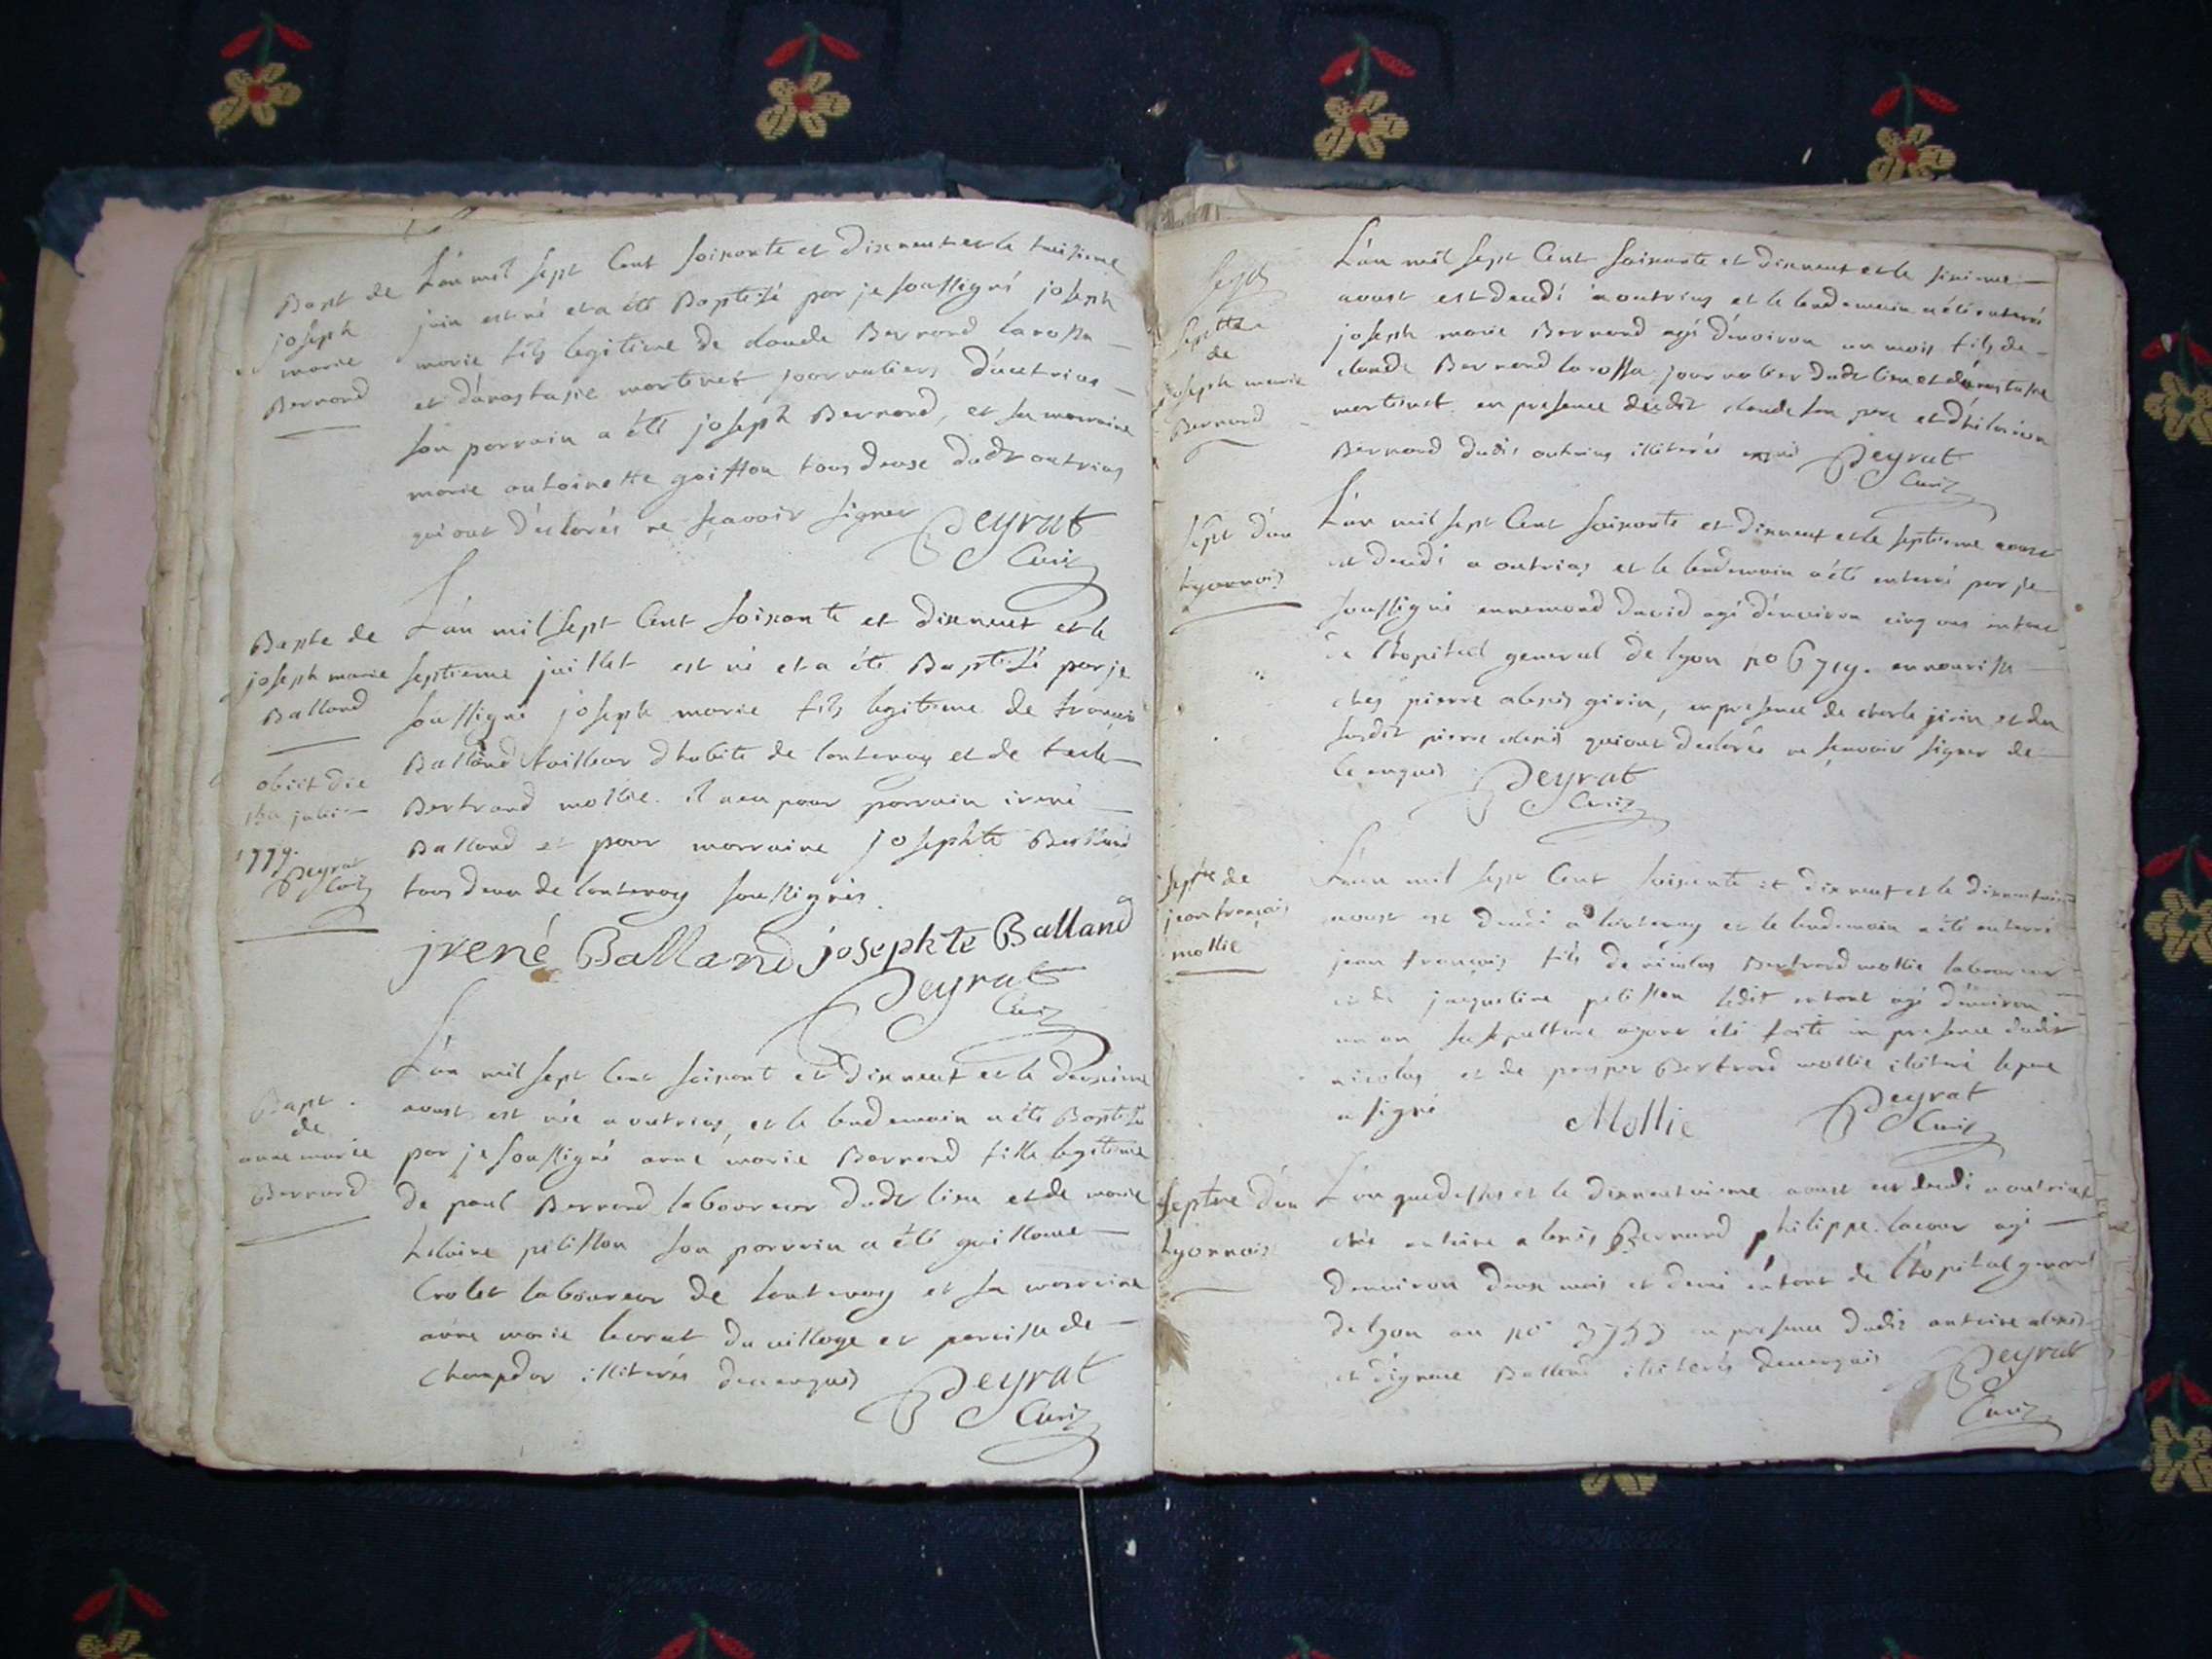 Bapt de
joseph
marie
Bernard
L'an mil sept Cent soixante et dixneuf et le treisieme
juin est né et a été Baptisé par je soussigné joseph
marie fils legitime de claude Bernard larossa
et d'anastasie martinet journaliers d'outrias
son parrain a été joseph Bernard, et sa marraine
marie antoinette goiffon tous deux dudt outrias
qui ont déclarés ne sçavoir signer Peyrat
Curé
Bapte de
joseph marie
Balland
obiit die
julii
1779.
Peyrat
Curé
L'an mil sept Cent soixante et dixneuf et le
septieme juillet est né et a été Baptisé par je
soussigné joseph marie fils legitime de francois
Balland tailleur d'habits de lantenay et de
Bertrand mollie. il a eu pour parrain irené
Balland et pour marraine josephte Balland
tous deux de lantenay soussignés.
jrené Balland josephte Balland
Peyrat
Curé
Bapt.
de
anne marie
Bernard
L'an mil sept Cent soixant et dixneuf et le deuxieme
aoust est née a outrias, et le lendemain a été Baptisée
par je soussigné anne marie Bernard fille legitime
de paul Bernard laboureur dudt lieu et de marie
helaine pelisson son parrain a été guillaume
Crolet laboureur de lantenay et sa marraine
anne marie du village et paroisse de
champdor illiterés de ce enquis Peyrat
Curé
Septte
de
joseph marie
Bernard
L'an mil sept Cent soixante et dixneuf et le sixieme
aoust est decedé a outrias et le lendemain a été enterré
joseph marie Bernard agé d'environ un mois fils de
claude Bernard larossa journalier dudt lieu et d'anastasie
martinet en presence dudit claude son pere et d'hilarion
Bernard dudit outrias illiterés Peyrat
Curé
sept d'un
Lyonnois
L'an mil sept Cent soixante et dixneuf et le septieme aoust
est decedé a outrias et le lendemain a été enterré par je
soussigné ennemond david agé d'environ cinq ans enfant
de l'hopital general de lyon no 6719. en nourisse
ches pierre alexis girin, en presence de charle girin et du
susdit pierre alexis qui ont declarés ne sçavoir signer de
ce enquis Peyrat
Curé
septre de
jean françois
mollie
L'an mil sept Cent soixante et dixneuf et le dixneuvieme
aoust est decedé a lantenay et le lendemain a été enterré
jean françois fils de nicolas Bertrand mollie laboureur
et de jacqueline pelisson ledit enfant agé d'environ
un an sa sepulture ayant été faite en presence dudit
nicolas et de prosper Bertrand mollie illiteré le pere
a signé Mollie Peyrat
Curé
Septre d'un
Lyonnois
L'an que dessus et le dixneuvieme aoust est decedé a outrias
chés antoine alexis Bernard philippe lacour agé
denviron deux mois et demi enfant de l'hopital general
de lyon au no 3753 en presence dudit antoine alexis
et d'ignace Balland illiterés de ce enquis Peyrat
Curé